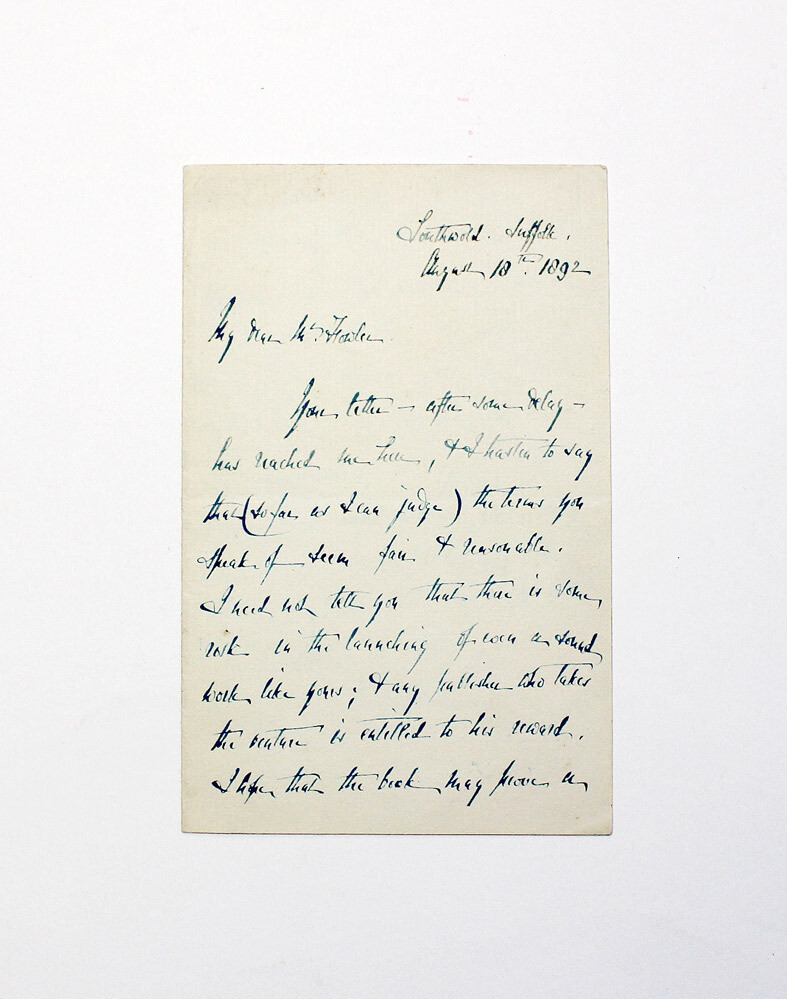 Southwold. Suffolk.
August 18th. 1892
My dear Mr. Fowler.
Your letter – after some delay –
has reached me here, & I hasten to say
that (so far as I can judge) the terms you
speak of seem fair & reasonable.
I need not tell you that there is some
risk in the launching of even a sound
work like yours; & any publisher who takes
the venture is entitled to his reward.
I hope that the book may prove a